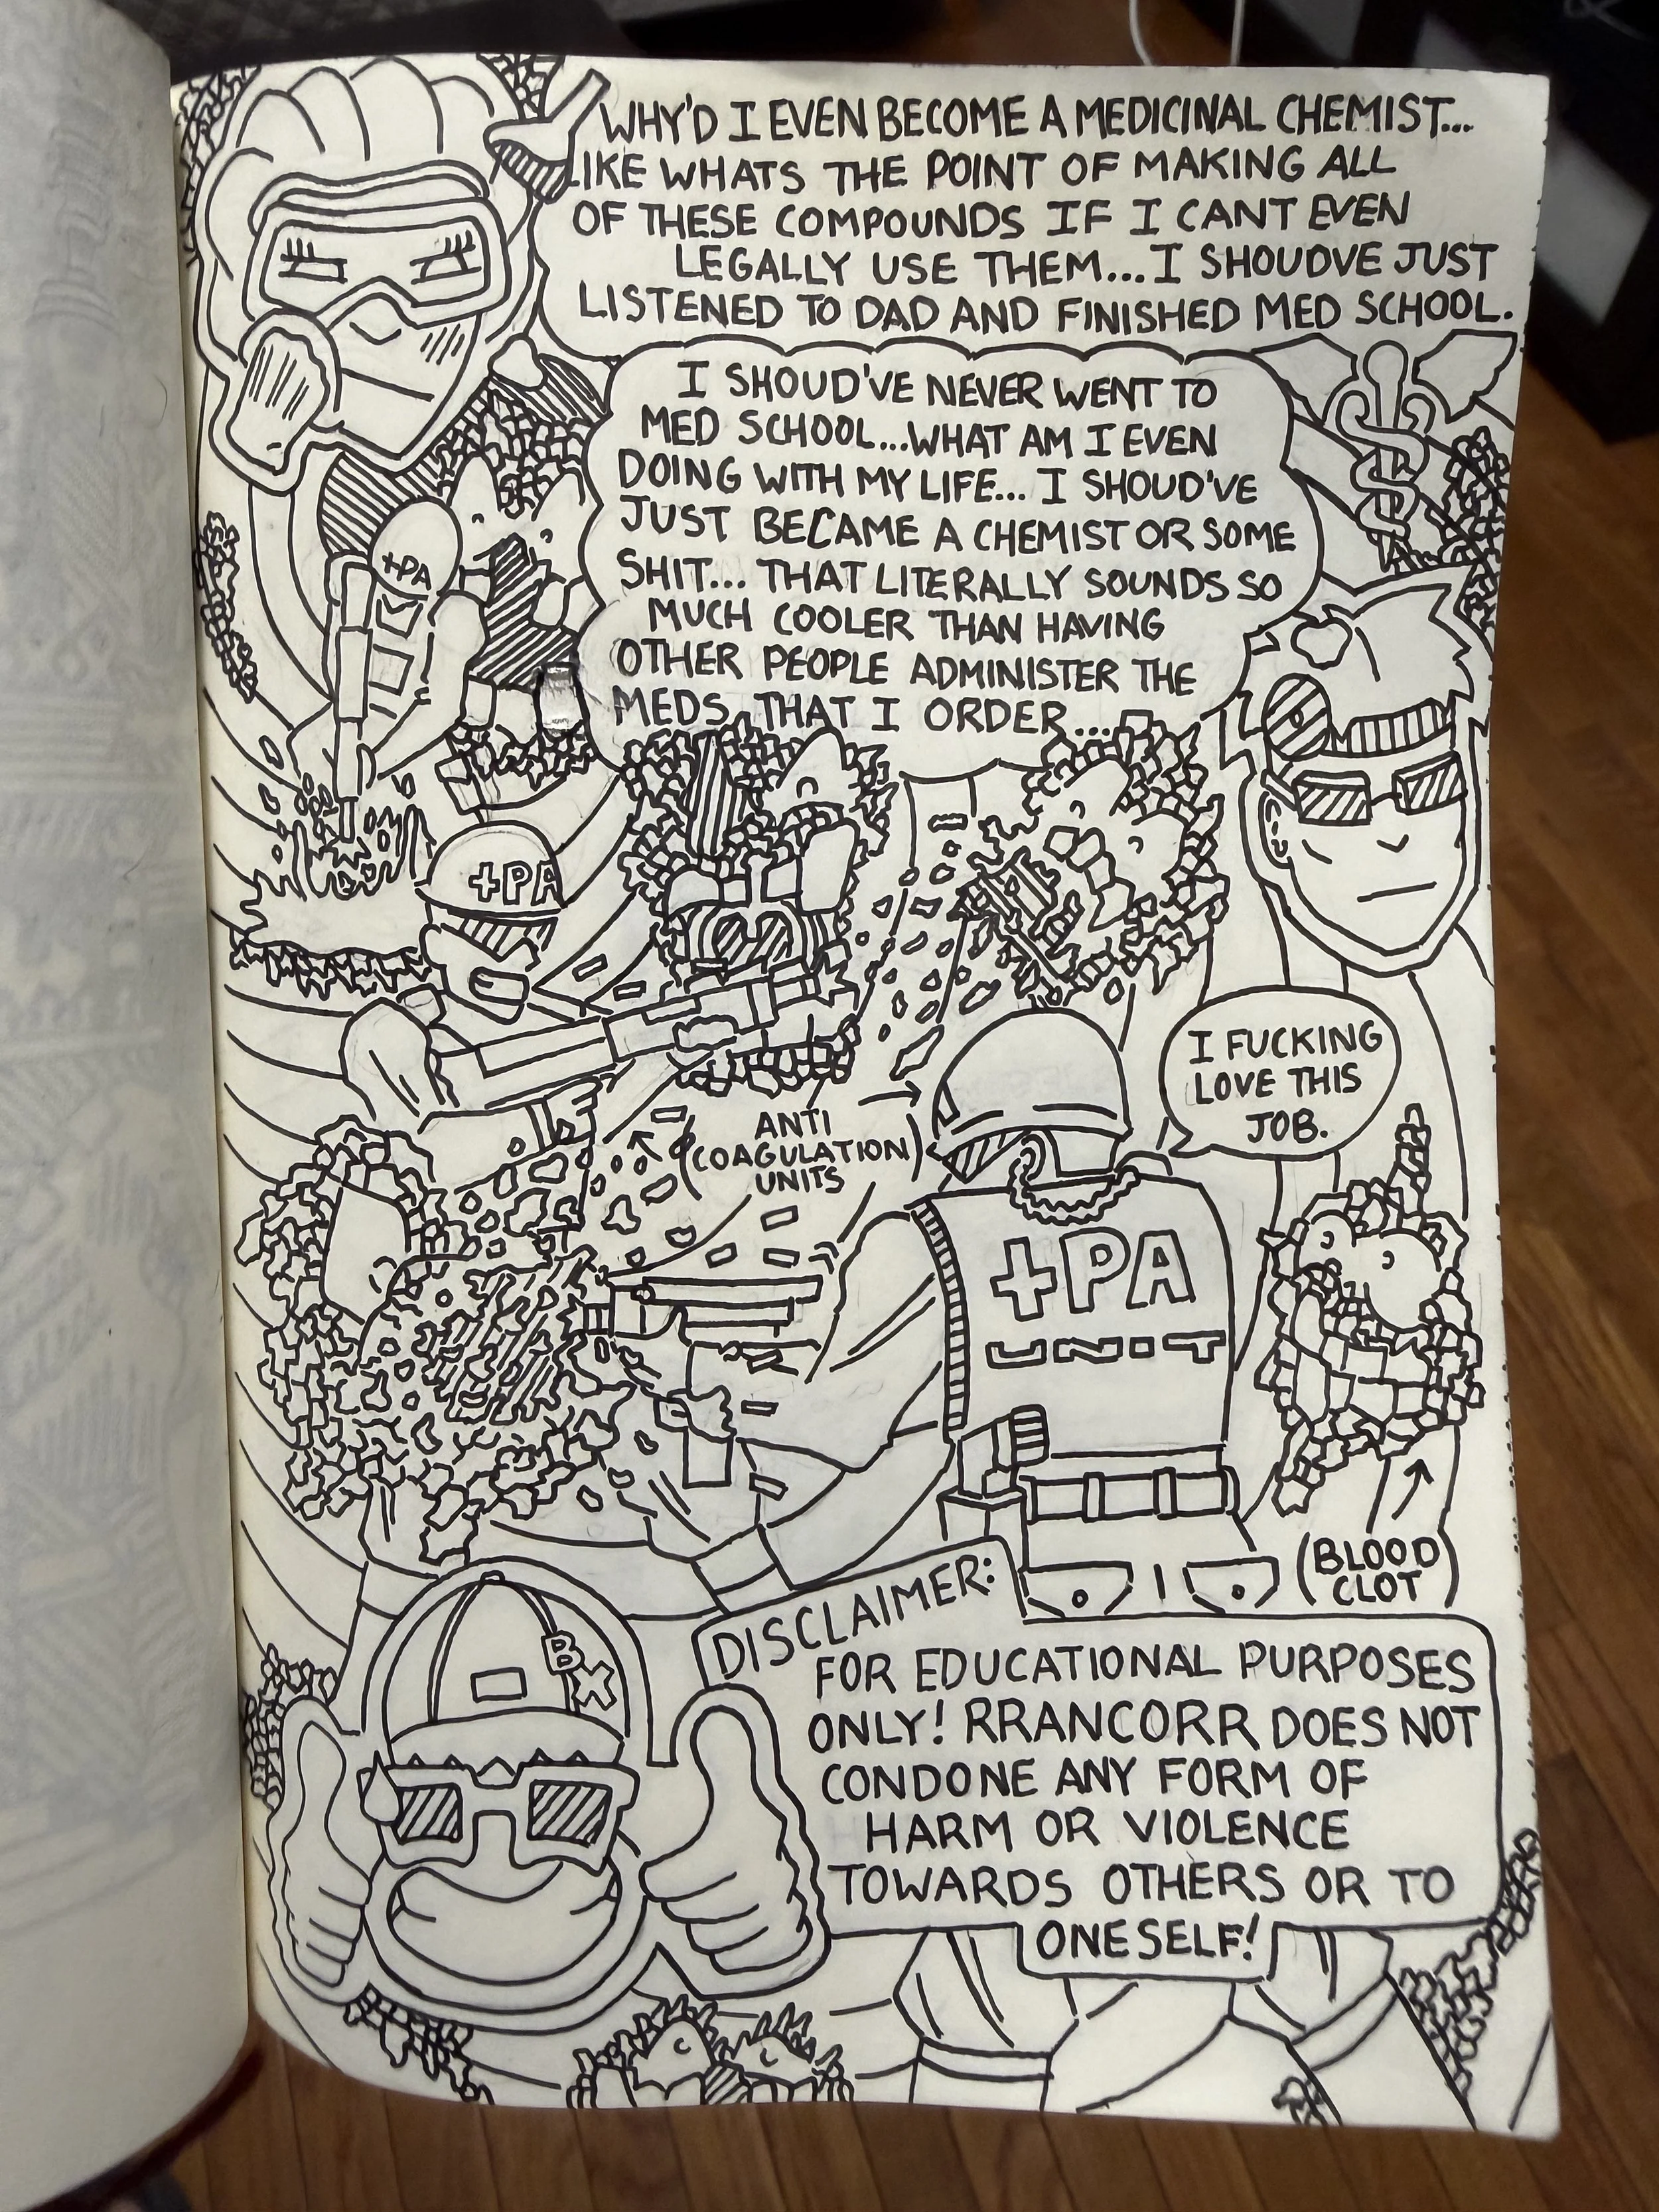 WHY'D I EVEN BECOME A MEDICINAL CHEMIST...
LIKE WHATS THE POINT OF MAKING ALL
OF THESE COMPOUNDS IF I CANT EVEN
LEGALLY USE THEM... I SHOUDVE JUST
LISTENED TO DAD AND FINISHED MED SCHOOL.
I SHOUD'VE NEVER WENT TO
MED SCHOOL...WHAT AM I EVEN
DOING WITH MY LIFE... I SHOUD'VE
JUST BECAME A CHEMIST OR SOME
SHIT... THAT LITERALLY SOUNDS SO
MUCH COOLER THAN HAVING
OTHER PEOPLE ADMINISTER THE
MEDS THAT I ORDER...
+PA
+PA
I FUCKING
LOVE THIS
JOB.
ANTI
(COAGULATION)
UNITS
+PA
UNIT
(BLOOD
CLOT)
BX
DISCLAIMER:
FOR EDUCATIONAL PURPOSES
ONLY! RRANCORR DOES NOT
CONDONE ANY FORM OF
HARM OR VIOLENCE
TOWARDS OTHERS OR TO
ONESELF!